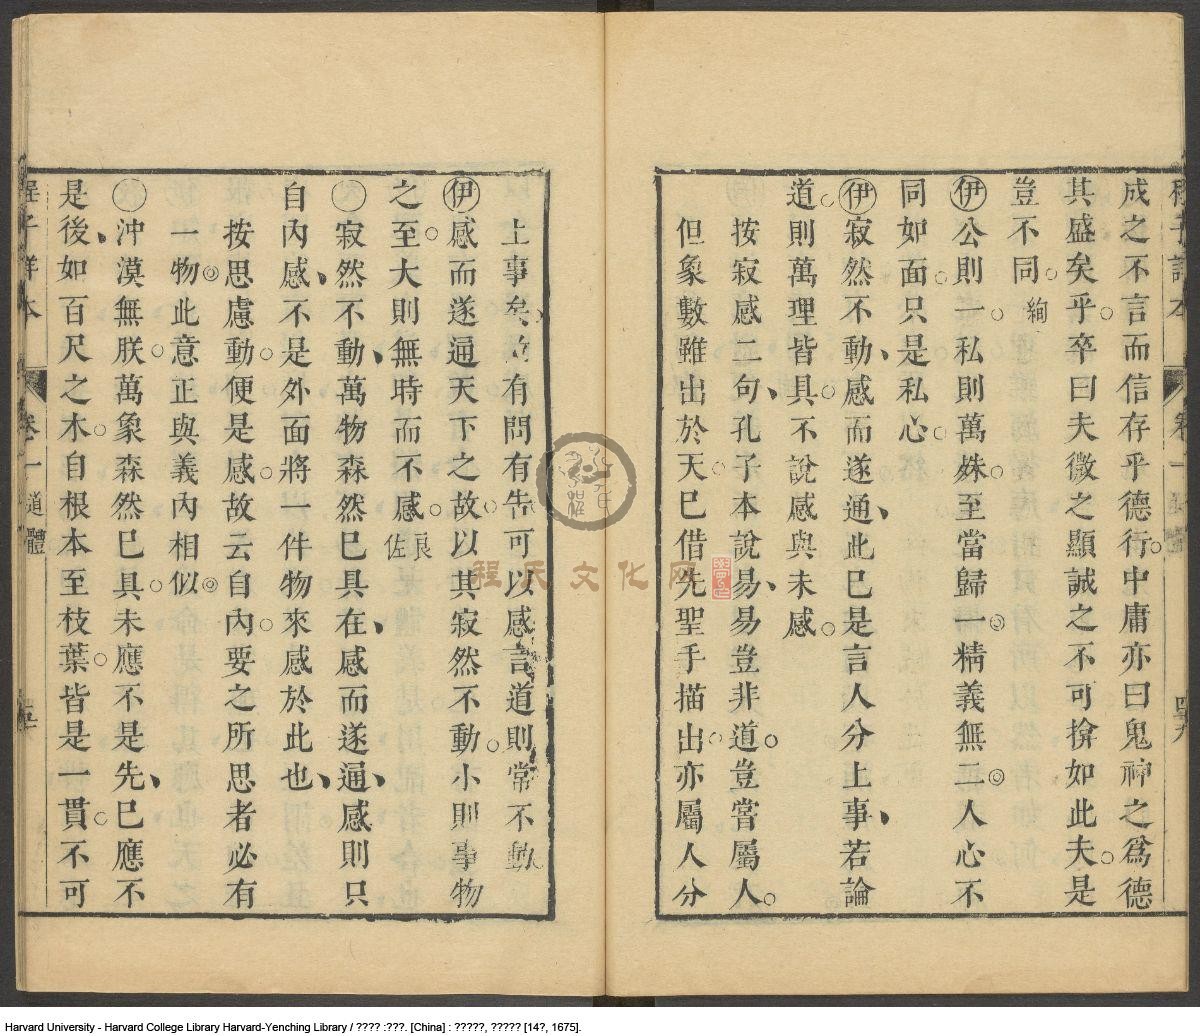 成之不言而信存乎德行中庸亦曰鬼神之爲德
其盛矣乎卒曰夫微之顯誠之不可揜如此夫是
豈不同 絢
伊公則一私則萬姝至當歸一精義無二人心不
同如面只是私心
伊寂然不動感而遂通此巳是言人分上事若論
道則萬理皆具不說感與未感
按寂感二句孔子本說易易豈非道豈嘗屬人
但象數雖出於天巳借先聖手描出亦屬人分
上事矣故有問有告可以感言道則常不動
伊感而遂通天下之故以其寂然不動小則事物
之至大則無時而不感 良佐
寂然不動萬物森然巳具在感而遂通感則只
自內感不是外面將一件物來感於此也
按思慮動便是感故云自內要之所思者必有
一物此意正與義內相似
沖漠無朕萬象森然巳具未應不是先巳應不
是後如百尺之木自根本至枝葉皆是一貫不可
卷一 道體
程氏文化网
Harvard University - Harvard College Library Harvard-Yenching Library / ???? :???. [China] : ?????, ????? [14?, 1675].